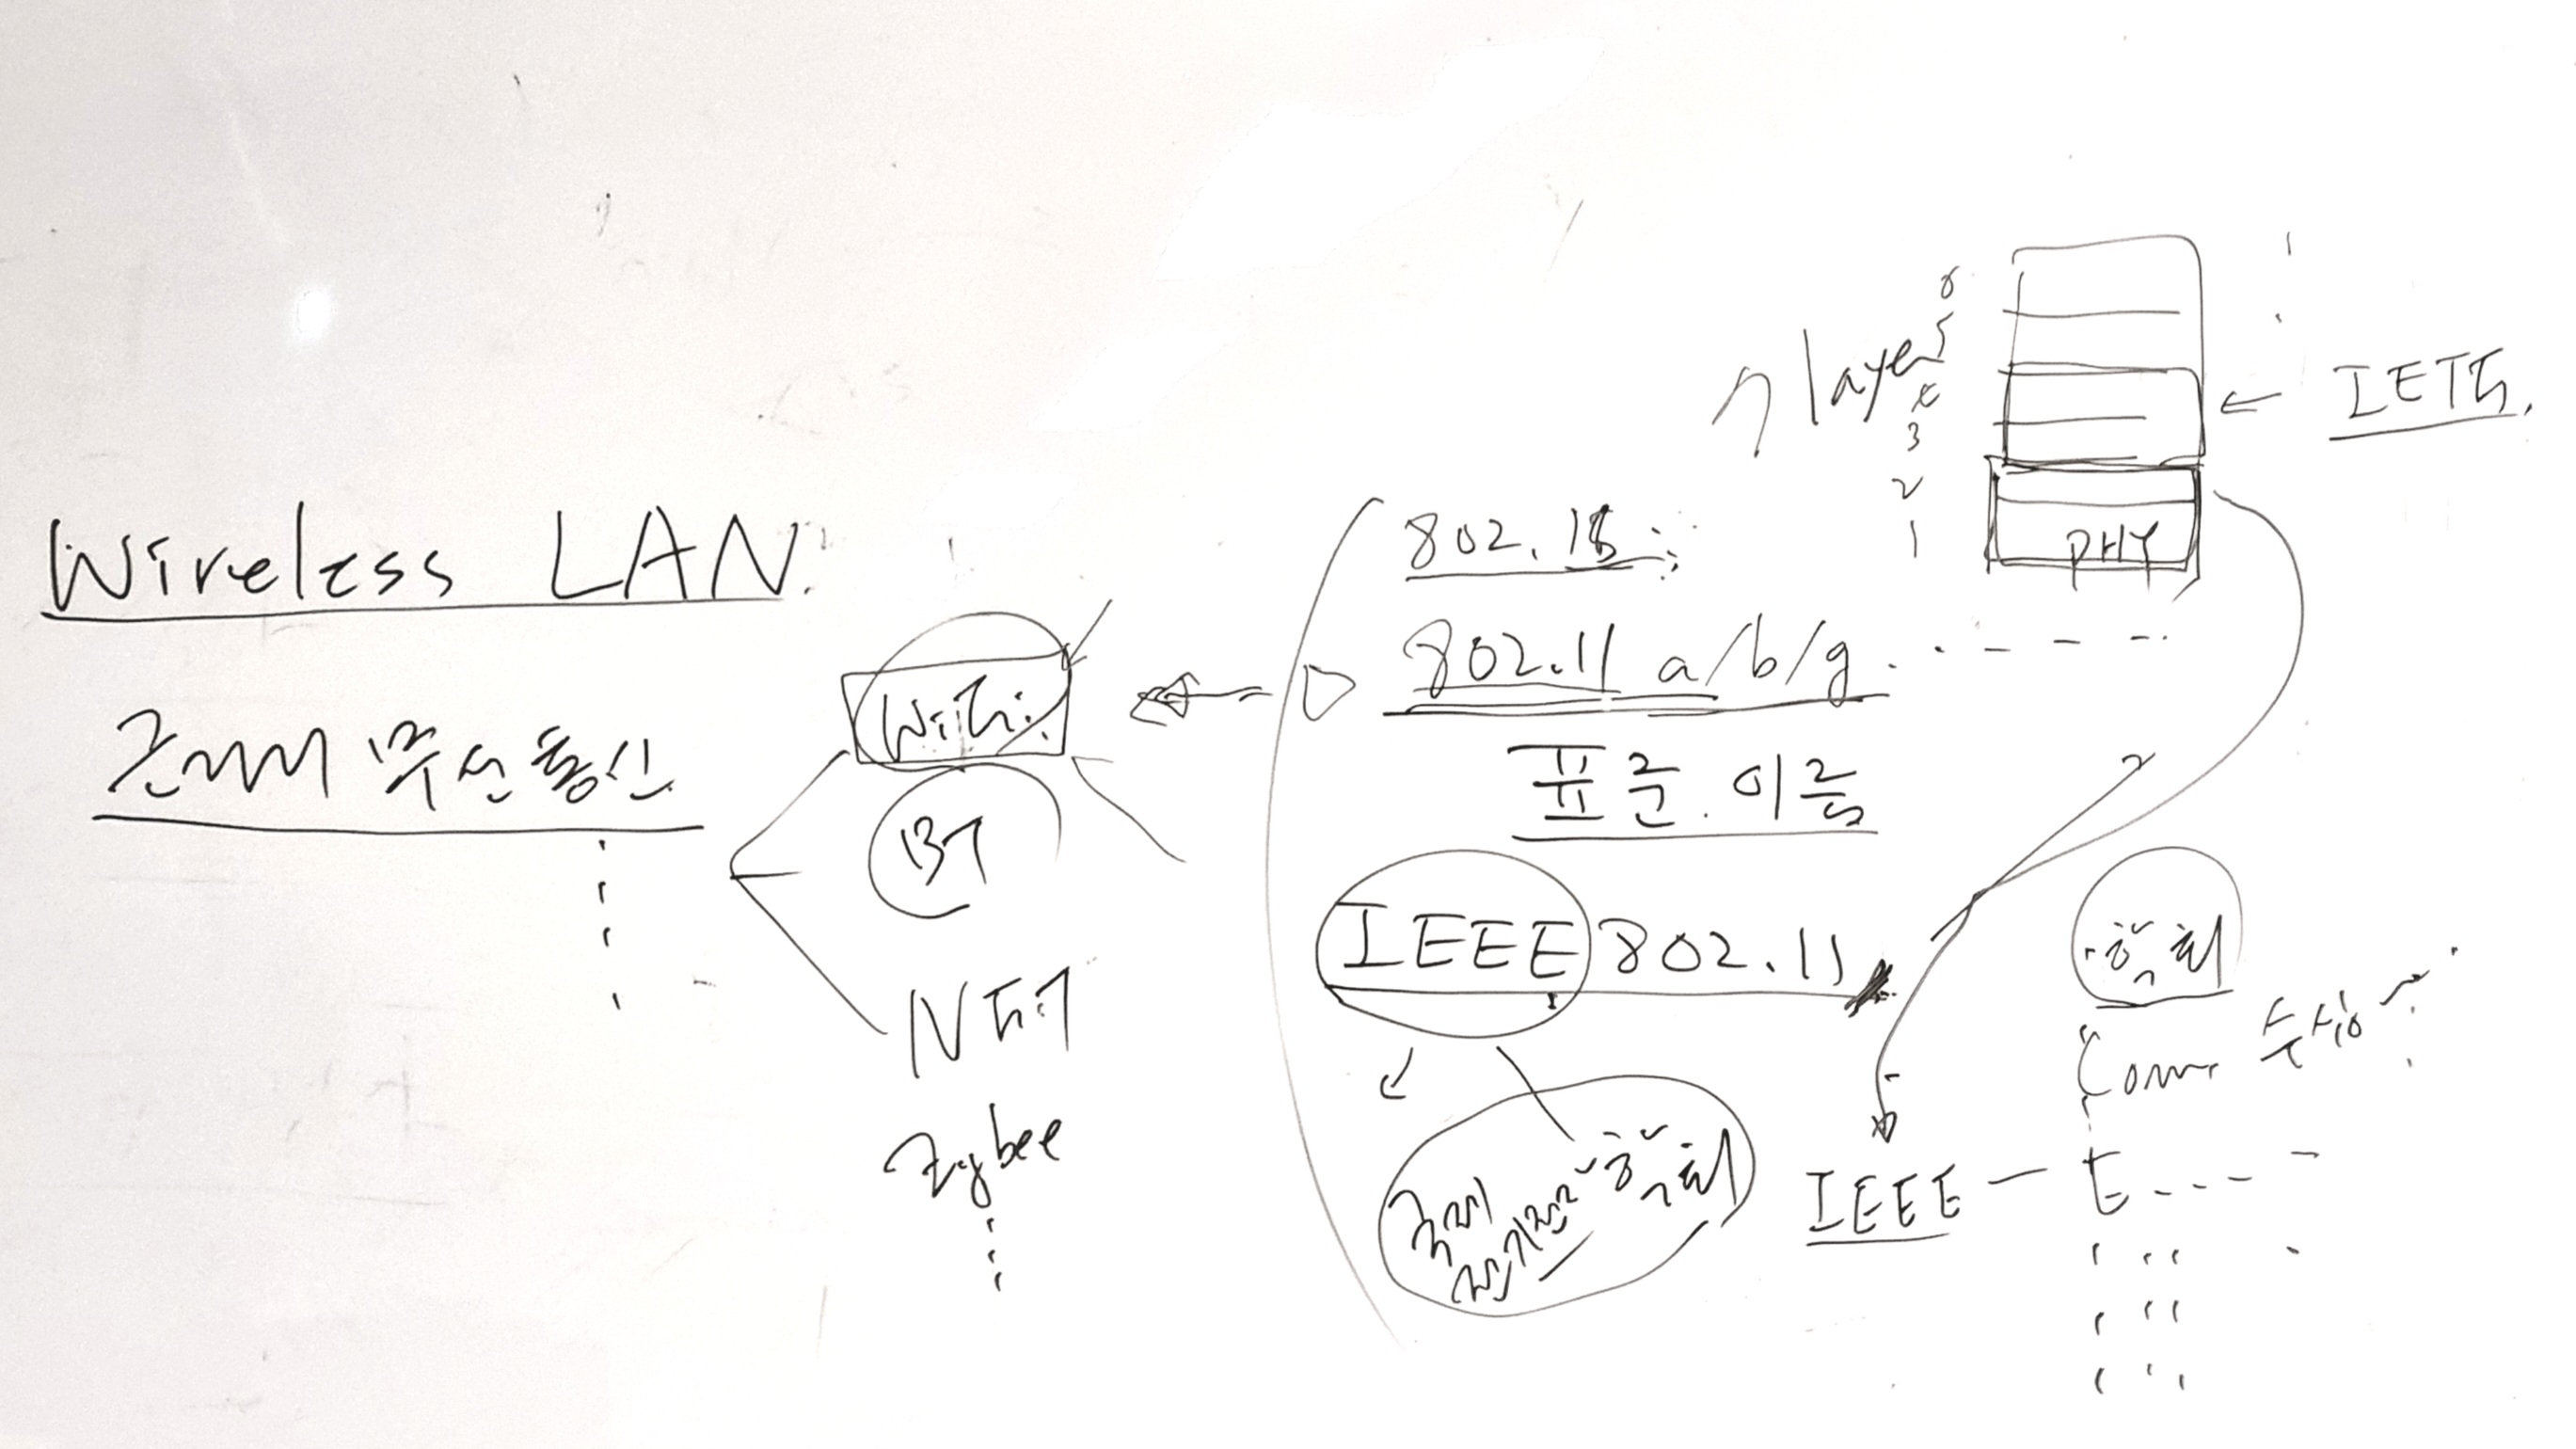 Wireless LAN.
근거리 무선통신
WiFi
BT
NFC
Zigbee
802.15
802.11 a/b/g
표준 이름
IEEE 802.11
국제
전기전자 학회
7 layer
6
5
4
3
2
1
PHY
IETF.
학회
Comm
IEEE - E